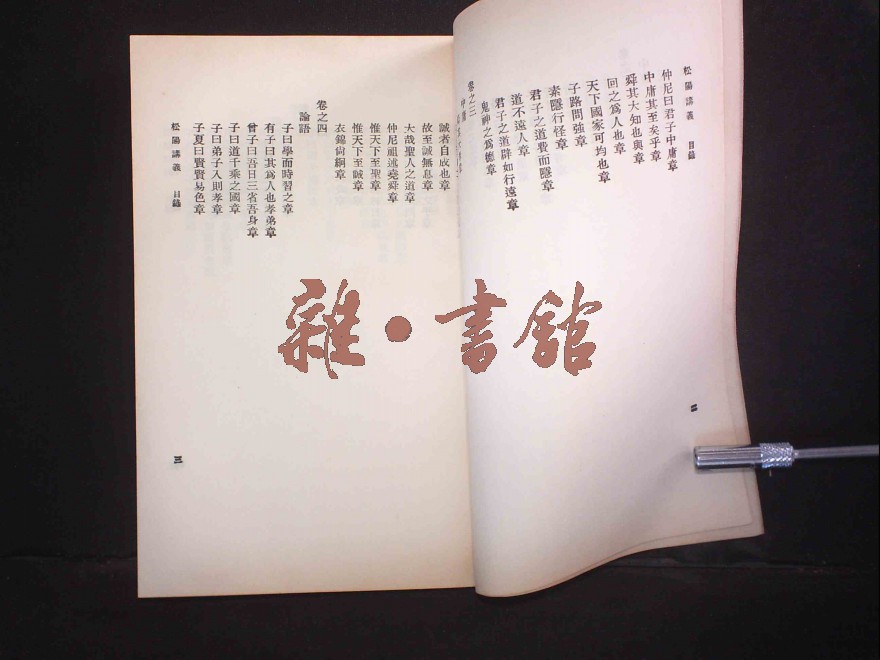 松陽講義 目錄
仲尼曰君子中庸章
中庸其至矣乎章
舜其大知也與章
回之爲人也章
天下國家可均也章
子路問強章
素隱行怪章
君子之道費而隱章
道不遠人章
君子之道辟如行遠章
鬼神之爲德章
二
卷之三
誠者自成也章
故至誠無息章
大哉聖人之道章
仲尼祖述堯舜章
惟天下至聖章
惟天下至誠章
衣錦尙絅章
卷之四
論語
子曰學而時習之章
有子曰其爲人也孝弟章
曾子曰吾日三省吾身章
子曰道千乘之國章
子曰弟子入則孝章
子夏曰賢賢易色章
松陽講義 目錄
三
雜·書館